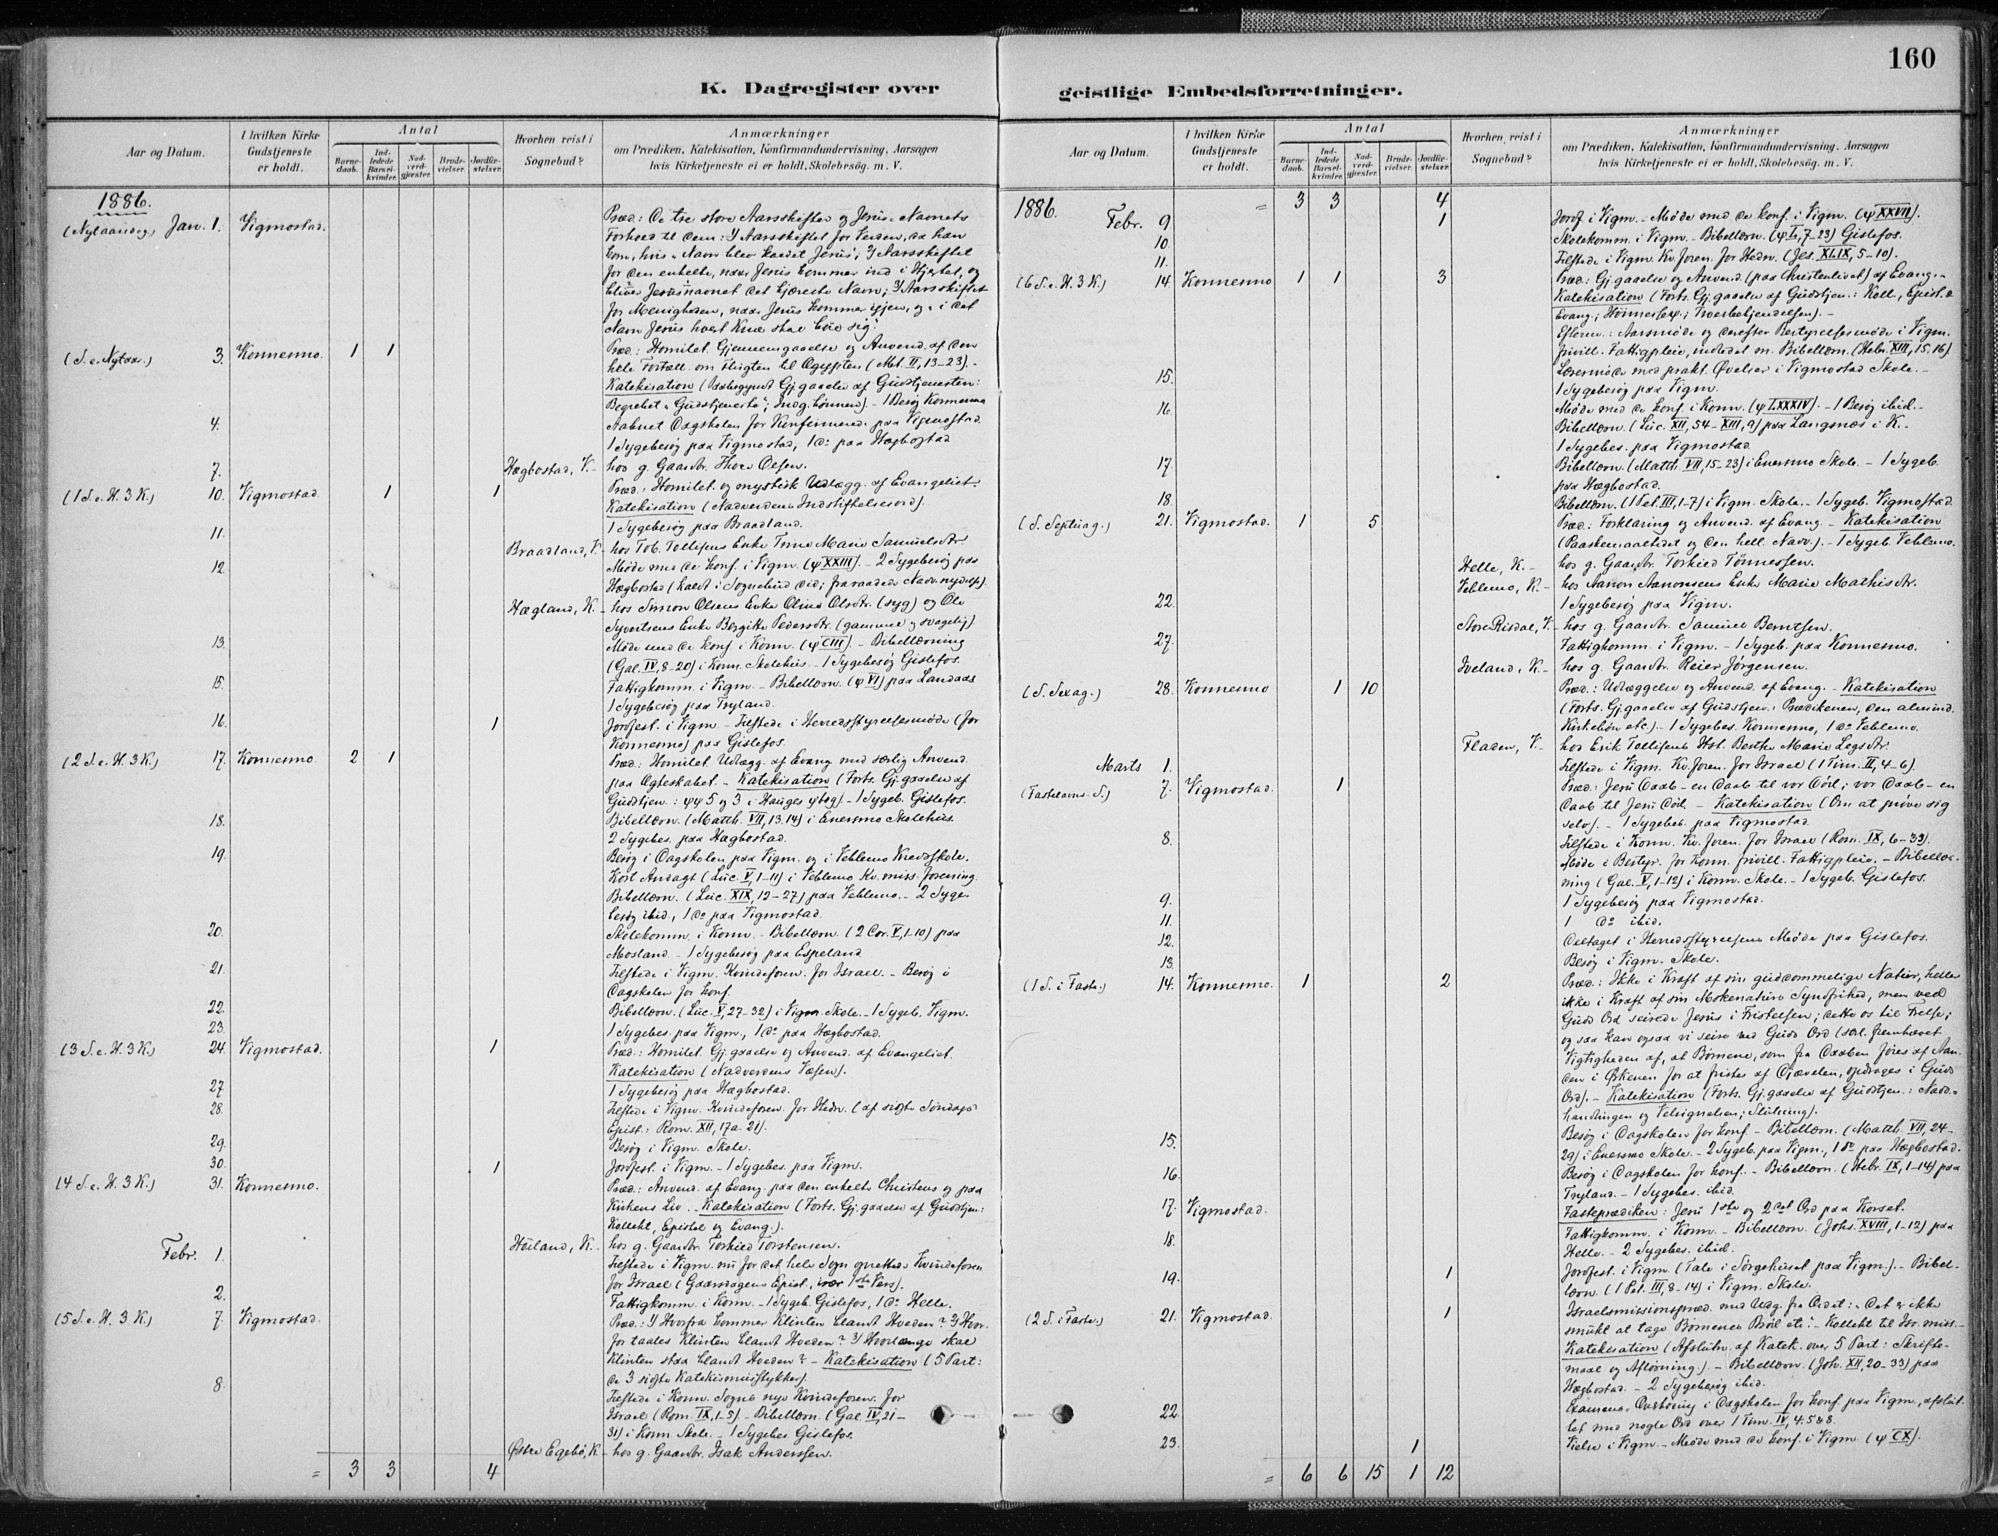 160
K. Dagregister over
geistlige Embedsforretninger.
Aar og Datum.
I hvilken Kirke Gudstjeneste er holdt.
Antal
Barnedaab.
Indledede Barselkvinder.
Nadverdgjester.
Brudevielser.
Jordfæstelser.
Hvorhen reist i Sognebud?
Anmærkninger
om Prædiken, Katekisation, Konfirmandundervisning, Aarsagen
hvis Kirketjeneste ei er holdt, Skolebesøg. m. V.
1886.
(Nytaarsdag) Jan. 1. Vigmostad. Præd.: De tre store Aarsskifter og Jesu Navnets
Forhold til dem: 1) Aarsskiftet for Verden, da han
kom, hvis Navn blev kaldet Jesus; 2) Aarsskiftet
for den enkelte, naar Jesus kommer ind i Hjertet, og
bliver Jesusnavnet det kjæreste Navn; 3) Aarsskiftet
for Menigheden, naar Jesus komma igjen, og i det
Navn Jesus hvert Knæ skal bøie sig."
(S. e. Nytaar.) 3. Konnesmo. 1 1 Præd.: Homilet. Gjennemgaaelse og Anvend. af den
hele Fortæll. om Flugten til Ægypten (Mat. II, 13-23). -
Katekisation (Paabegyndt Gj.gaaelse af Gudstjenesten:
Begrebet "Gudstjeneste"; Indg.bønnen). - 1 Besøg Konnesmo
4. Aabnet Dagskolen for Konfirmand. paa Vigmostad
1 Sygebesøg paa Vigmostad, 1 do paa Hægbostad
7. Hægbostad, V. - hos g. Gaardbr. Thore Olsen.
(1 S. e. H. 3 K.) 10. Vigmostad. 1 1 Præd.: Homilet. og mystisk Udlægg. af Evangeliet.
Katekisation (Nadverdens Indstiftelsesord).
11. 1 Sygebesøg paa Braadland.
Braadland, V. - hos Tob. Tollefsens Enke Trine Marie Samuelsdtr.
12. Møde med de konf. i Vigm. (ψ XXIII). - 2 Sygebesøg paa
Hægbostad (kaldt i Sognebud did; fraraadede Nadv.nydelse).
Hægland, K. - hos Simon Olsens Enke Oline Olsdtr. (syg) og Ole
Syvertsens Enke Bergitte Pedersdtr. (gammel og svagelig)
13. Møde med de konf. i Konn. (ψ CIII). - Bibellæsning
(Gal. IV, 8-20) i Konn. Skolehus. - 1 Sygebesøg Gislefos.
15. Fattigkomm. i Vigm. - Bibellæsn. (ψ VI) paa Landaas
1 Sygebesøg paa Tryland.
16. 1 Jordfest. i Vigm. - Tilstede i Herredsstyrelsesmøde (for
Konnesmo) paa Gislefos.
(2 S. e. H. 3 K.) 17. Konnesmo. 2 1 Præd.: Homilet. Udlægg. af Evang. med særlig Anvend.
paa Ægteskabet. - Katekisation (Forts. Gj.gaaelse af
Gudstjen.: ψψ 5 og 3 i Hauges ψbog). - 1 Sygeb. Gislefos.
18. Bibellæsn. (Matth. VII, 13. 14) i Enersmo Skolehus
2 Sygebes. paa Hægbostad.
19. Besøg i Dagskolen paa Vigm. og i Veblemo Kredsskole.
Kort Andagt (Luc. V, 1-11) i Veblemo Kv.miss.forening.
Bibellæsn. (Luc. XIX, 12-27) paa Veblemo. - 2 Syge-
besøg ibid., 1 do paa Vigmostad.
20. Skolekomm. i Konn. - Bibellæsn. (2 Cor. V, 1-10) paa
Mosland. - 1 Sygebesøg paa Espeland
21. Tilstede i Vigm. Kvindeforen. for Israel. - Besøg i
Dagskolen for konf.
22. Bibellæsn. (Luc. V, 27-32) i Vigm. Skole. - 1 Sygeb. Vigm.
23. 1 Sygebes. paa Vigm., 1 do paa Hægbostad.
(3 S. e. H. 3 K.) 24. Vigmostad. 1 Præd.: Homilet. Gj.gaaelse og Anvend. af Evangeliet.
Katekisation (Nadverdens Væsen).
27 1 Sygebesøg paa Hægbostad.
28. Tilstede i Vigm. Kvindeforen. for Hedn. (af sidste Søndags
Epist.: Rom. XII, 17 a. 21).
29. Besøg i Vigm. Skole.
30. 1 Jordfest. i Vigm. - 1 Sygebes. paa Vigm.
(4 S. e. H. 3 K.) 31. Konnesmo. Præd.: Anvend. af Evang. paa den enkelte Christens og paa
Kirkens Liv. - Katekisation (Forts. Gj.gaaelse af Gudstjen.:
Kollekt, Epistel og Evang.).
Febr. 1. Høiland, K. - hos g. Gaardbr. Torkild Torstensen.
Tilstede i Vigm. nu for det hele Sogn oprettede Kvindeforen
for Israel (Gaarsdagens Epist. især 1ste Vers).
2. Fattigkomm. i Konn. - 1 Sygeb. Gislefos, 1 do Helle.
(5 S. e. H. 3 K.) 7. Vigmostad. Præd.: 1) Hvorfra kommer Klinten blandt Hveden? 2) Hvor-
for taales Klinten blandt Hveden? 3) Hvorlænge skal
Klinten staa blandt Hveden? - Katekisation (5 Part:
de 3 sidste Katekismusstykker).
8. Tilstede i Konn. Sogns nye Kvindeforen. for
Israel (Rom. IX, 1-5). - Bibellæsn. (Gal. IV, 21-
31) i Konn. Skole. - 1 Sygebes. Gislefos.
Østre Egebø, K. - hos g. Gaardbr. Isak Anderssen.
= 3 3 4
Aar og Datum.
I hvilken Kirke Gudstjeneste er holdt.
Antal
Barnedaab.
Indledede Barselkvinder.
Nadverdgjester.
Brudevielser.
Jordfæstelser.
Hvorhen reist i Sognebud?
Anmærkninger
om Prædiken, Katekisation, Konfirmandundervisning, Aarsagen
hvis Kirketjeneste ei er holdt, Skolebesøg. m. V.
1886. = 3 3 4
Febr. 9 1 Jordf. i Vigm. - Møde med de konf. i Vigm. (ψ XXVII).
10. Skolekomm. i Vigm. - Bibellæsn. (ψ L, 7-23) Gislefos.
11. Tilstede i Vigm. Kv.foren. for Hedn. (Jes. XLIX, 5-10).
(6 S. e. H. 3 K.) 14 Konnesmo 1 1 3 Præd.: Gj.gaaelse og Anvend. (paa Christenlivet) af Evang. -
Katekisation (Forts. Gj.gaaelse af Gudstjen.: Koll., Epist. &
Evang.; Trosbekjendelsen). -
Efterm.: Aarsmøde og derefter Bestyrelsesmøde i Vigm.
frivill. Fattigpleie, indledet m. Bibellæsn. (Hebr. XIII, 15. 16)
15. Læsermøde med prakt. Øvelser i Vigmostad Skole. -
1 Sygebesøg paa Vigm.
16. Møde med de konf. i Konn. (ψ LXXXIV). - 1 Besøg ibid. -
Bibellæsn. (Luc. XII, 54 - XIII, 9) paa Langsnes i K. -
1 Sygebes. paa Vigmostad
17. Bibellæsn. (Matth. VII, 15-23) i Enersmo Skole. - 1 Sygeb.
paa Hægbostad.
18 Bibellæsn. (1 Pet. III, 1-7) i Vigm. Skole. - 1 Sygeb. Vigmostad.
(S. Septuag.) 21. Vigmostad. 1 5 Præd.: Forklaring og Anvend. af Evang. - Katekisation
(Paaskemaaltidet og den hell. Nadv.). - 1 Sygeb. Veblemo.
Helle, K. - hos g. Gaardbr. Torkild Tønnessen.
Veblemo, K. - hos Aanon Aanonsens Enke Marie Mathisdtr.
22. 1 Sygebesøg paa Vigm.
Store Risdal, V. - hos g. Gaardbr. Samuel Berntsen.
27. Fattigkomm. i Vigm. - 1 Sygeb. paa Konnesmo.
Iveland, K. - hos g. Gaardbr. Reier Jørgensen.
(S. Sexag.) 28. Konnesmo 1 10 Præd.: Udlæggelse og Anvend. af Evang. - Katekisation
(Forts. Gj.gaaelse af Gudstjen.: Prædikenen, den almind.
Kirkebøn etc.) - 1 Sygebes. Konnesmo, 1 do Veblemo.
Fladen, V. - hos Erik Tollefsens Hst. Berthe Marie Legsdtr.
Marts 1. Tilstede i Vigm. Kv.foren. for Israel (1 Tim. II, 4-6).
(Fastelavns S.) 7. Vigmostad. 1 Præd.: Jesu Daab - en Daab til vor Død; vor Daab - en
Daab til Jesu Død. - Katekisation (Om at prøve sig
selv). - 1 Sygebes. paa Vigmostad.
8. Tilstede i Konn. Kv.foren. for Israel (Rom. IX, 6-33).
Møde i Bestyr. for Konn. frivill. Fattigpleie. - Bibellæs-
ning (Gal. V, 1-12) i Konn. Skole. - 1 Sygeb. Gislefos.
9. 1 Sygebesøg paa Vigmostad.
11. 1 do ibid.
12. Deltaget i Herredsstyrelsens Møde paa Gislefos.
13. Besøg i Vigm. Skole.
(1 S. i Faste.) 14. Konnesmo. 1 2 Præd.: Ikke i Kraft af sin guddommelige Natur, heller
ikke i Kraft af sin Mskenaturs Syndfrihed, men ved
Guds Ord seirede Jesus i Fristelsen; dette os til Frelse;
og saa kan ogsaa vi seire ved Guds Ord (særl. fremhævet
Vigtigheden af, at Børnene, som fra Daaben føres af Aan-
den i Ørkenen for at fristes af Djævelen, opdrages i Guds
Ord). - Katekisation (Forts. Gj.gaaelse af Gudstjen.: Nadv.-
handlingen og Velsignelsen; Slutning).
15. Besøg i Dagskolen for konf. - Bibellæsn. (Matth. VII, 24-
29) i Enersmo Skole. - 2 Sygeb. paa Vigm., 1 do paa Hægbostad.
16. Besøg i Dagskolen for konf. - Bibellæsn. (Hebr. IX, 1-14) paa
Tryland. - 1 Sygebes. ibid.
17. Vigmostad. Fasteprædiken: Jesu 1ste og 2det Ord paa Korset.
18. Fattigkomm. i Konn. - Bibellæsn. (Johs. XVIII, 1-12) paa
Helle. - 2 Sygebes. ibid.
19. 1 Jordfest. i Vigm. (Tale i Sørgehuset paa Vigm.). - Bibel-
læsn. (1 Pet. III, 8-14) i Vigm. Skole.
(2 S. i Faste.) 21. Vigmostad. 1 Israelsmissionspræd. med Udg. fra Ordet: "Det er ikke
smukt at tage Børnenes Brød etc." - Kollekt til Isr.miss. -
Katekisation (Afslutn. af Katek. over 5 Part: Skrifte-
maal og Afløsning). - Bibellæsn. (Joh. XII, 20-33) paa
Hægbostad. - 2 Sygebesøg ibid.
22. Examens-Overhøring i Dagskolen for konf. paa Vigm., afslut-
tet med nogle Ord over 1 Tim. IV, 4. 5 & 8.
23. 1 Vielse i Vigm. - Møde med de konf. i Vigm. (ψ CX).
= 6 6 15 1 12